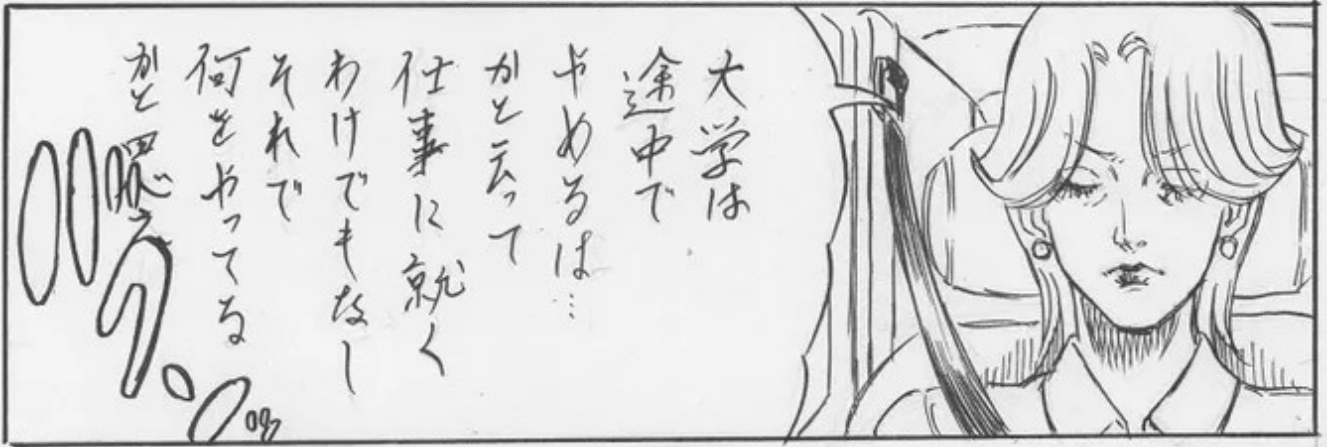 大学は
途中で
やめるは…
かと云って
仕事に就く
わけでもなし
それで
何をやってる
かと思えば